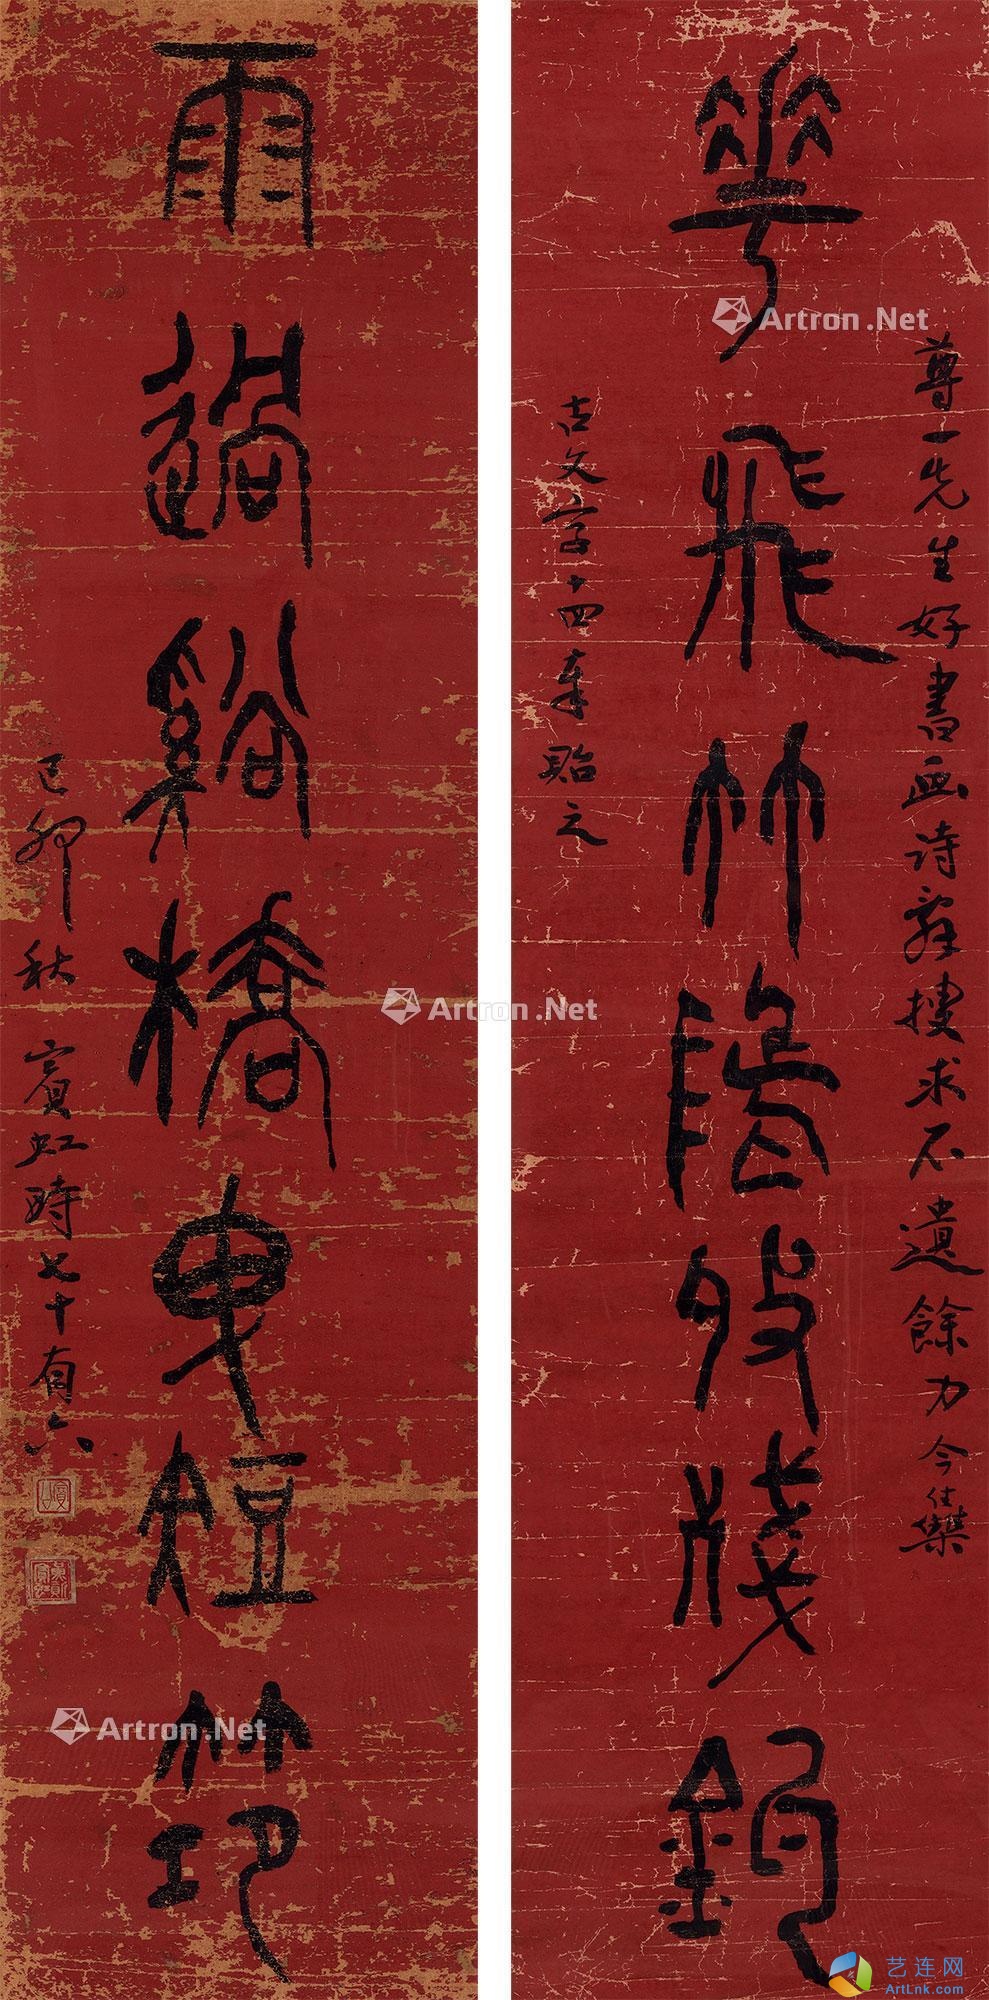 華飛竹收殘釣
尊一先生好書画诗辞搜求不遺餘力今集
古文字十四奉貽之
雨過谿橋曳短筇
己卯秋 賓虹時七十有六
Artron.Net
Artron.Net
Artron.Net
艺连网
ArtLnk.com